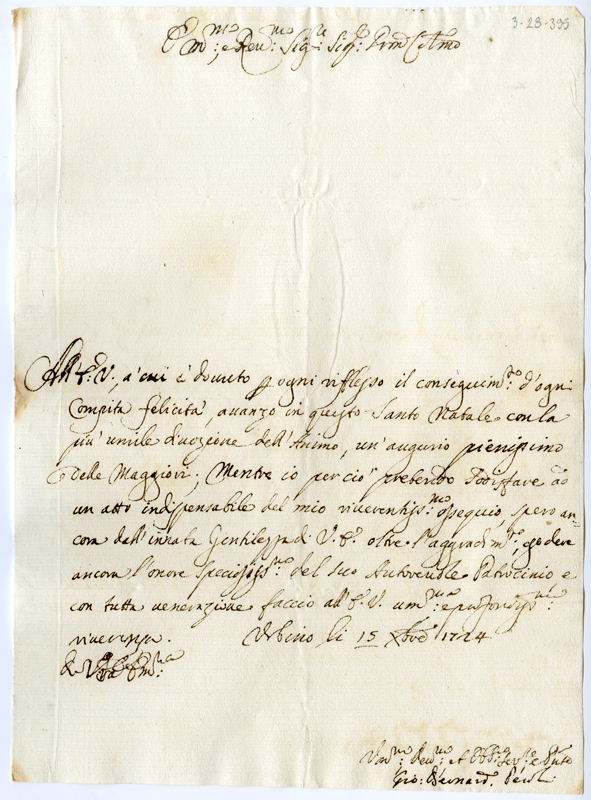 3-28-395
Em:mo, e Rev:mo Sig:re Sig:re Pron Col:mo
All' E:a V., a' cui è dovuto p ogni riflesso il conseguim:to d'ogni
Compita felicità, avanzo in questo Santo Natale con la
più umile divozione dell'Animo, un'augurio pienissimo
delle Maggiori; Mentre io perciò pretendo sodisfare ad
un atto indispensabile del mio riverentiss:mo ossequio, spero an=
cora dall'innata Gentilezza di V. E:a oltre l'aggradim:to, godere
ancora l'onore speciosiss:mo del suo Autorevole Patrocinio e
con tutta venerazione faccio all'E. V. um:ma e profondiss:ma
riverenza. Urbino li 15 Xbre 1724
Di V:ra Em:za
Um:mo Dev:mo et Obb:mo Ser:re
Gio: Bernard:o